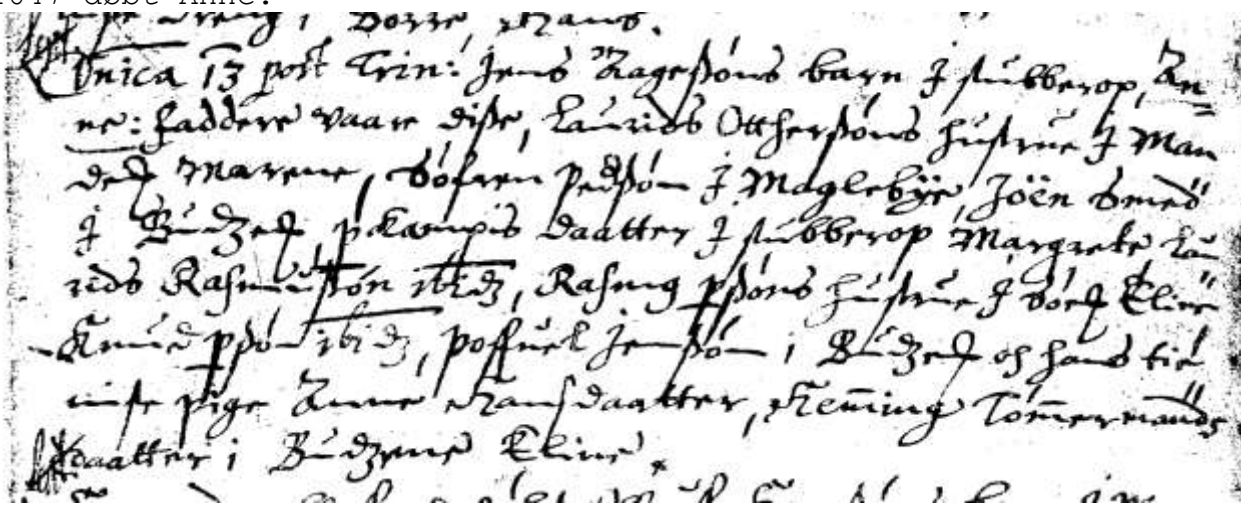 døbt Anne.
i Borre, Hans.
Sept
Dnica 13 post Trin: Jens Aagesøns barn J stubberop, An=
ne: faddere vaare disse, Laurids Otthersøns hustrue J Man
deß Marene, Søfren Pedsøn J Maglebÿe, Jöen Smed
J Budzeß, p Kampis daatter J stubberop Margrete Lau
rids Rasmussøn ibidz, Rasmus psøns hustrue J Eline
Knud psøn ibidz, Poffuel Jensøn i Budzeß oc hans tie
niste pige Anne Hansdaatter, Hemming Tömermands
daatter i Budzene Eline.